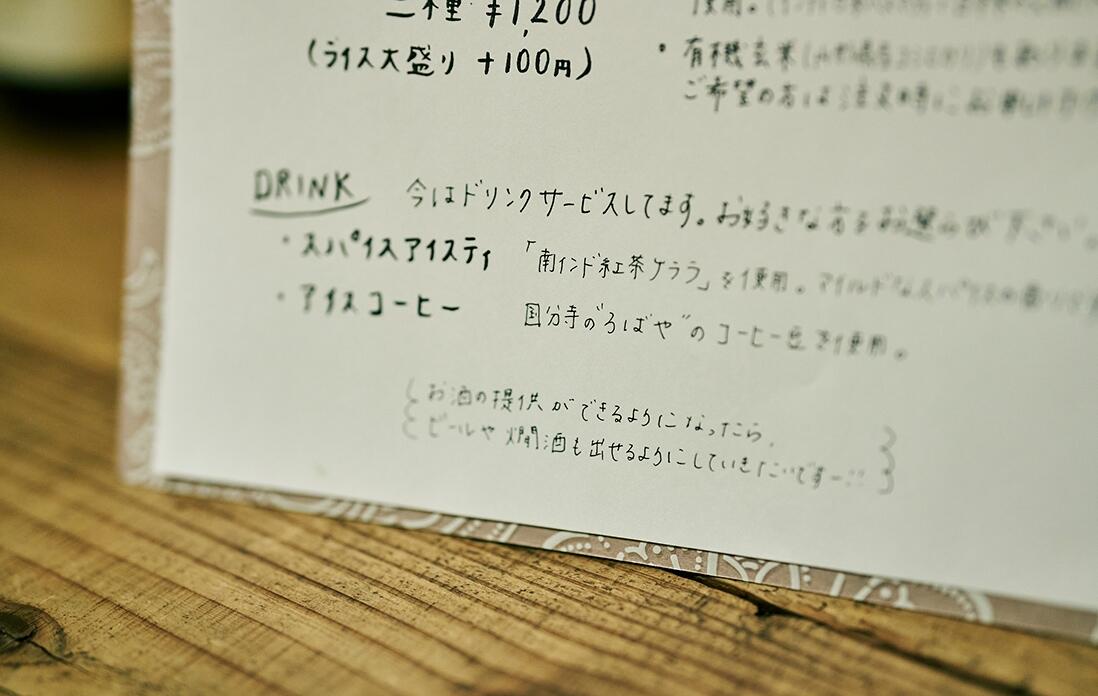 二種 ¥1,200
(ライス大盛り +100円)
使用。
・有機玄米
ご希望の方は注文時に
DRINK 今はドリンクサービスしてます。お好きな方をお選び下さい。
・スパイスアイスティ 「南インド紅茶ケララ」を使用。マイルドなスパイスの香り
・アイスコーヒー 国分寺の"ろばや"のコーヒー豆を使用。
お酒の提供ができるようになったら、
ビールや燗酒も出せるようにしていきたいですー!!